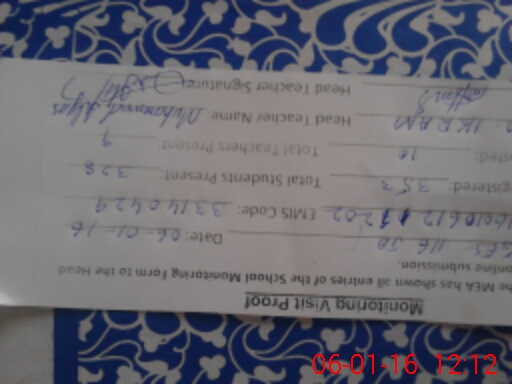 Monitoring Visit Proof
he MEA has shown all entries of the School Monitoring Form to the Head
online submission.
Date: 06-01-16
EMIS Code: 33140429
gistered: 353 Total Students Present: 328
osted: 10 Total Teachers Present: 9
IKRAM Head Teacher Name: Muhammad
Head Teacher Signature:
06-01-16 12:12